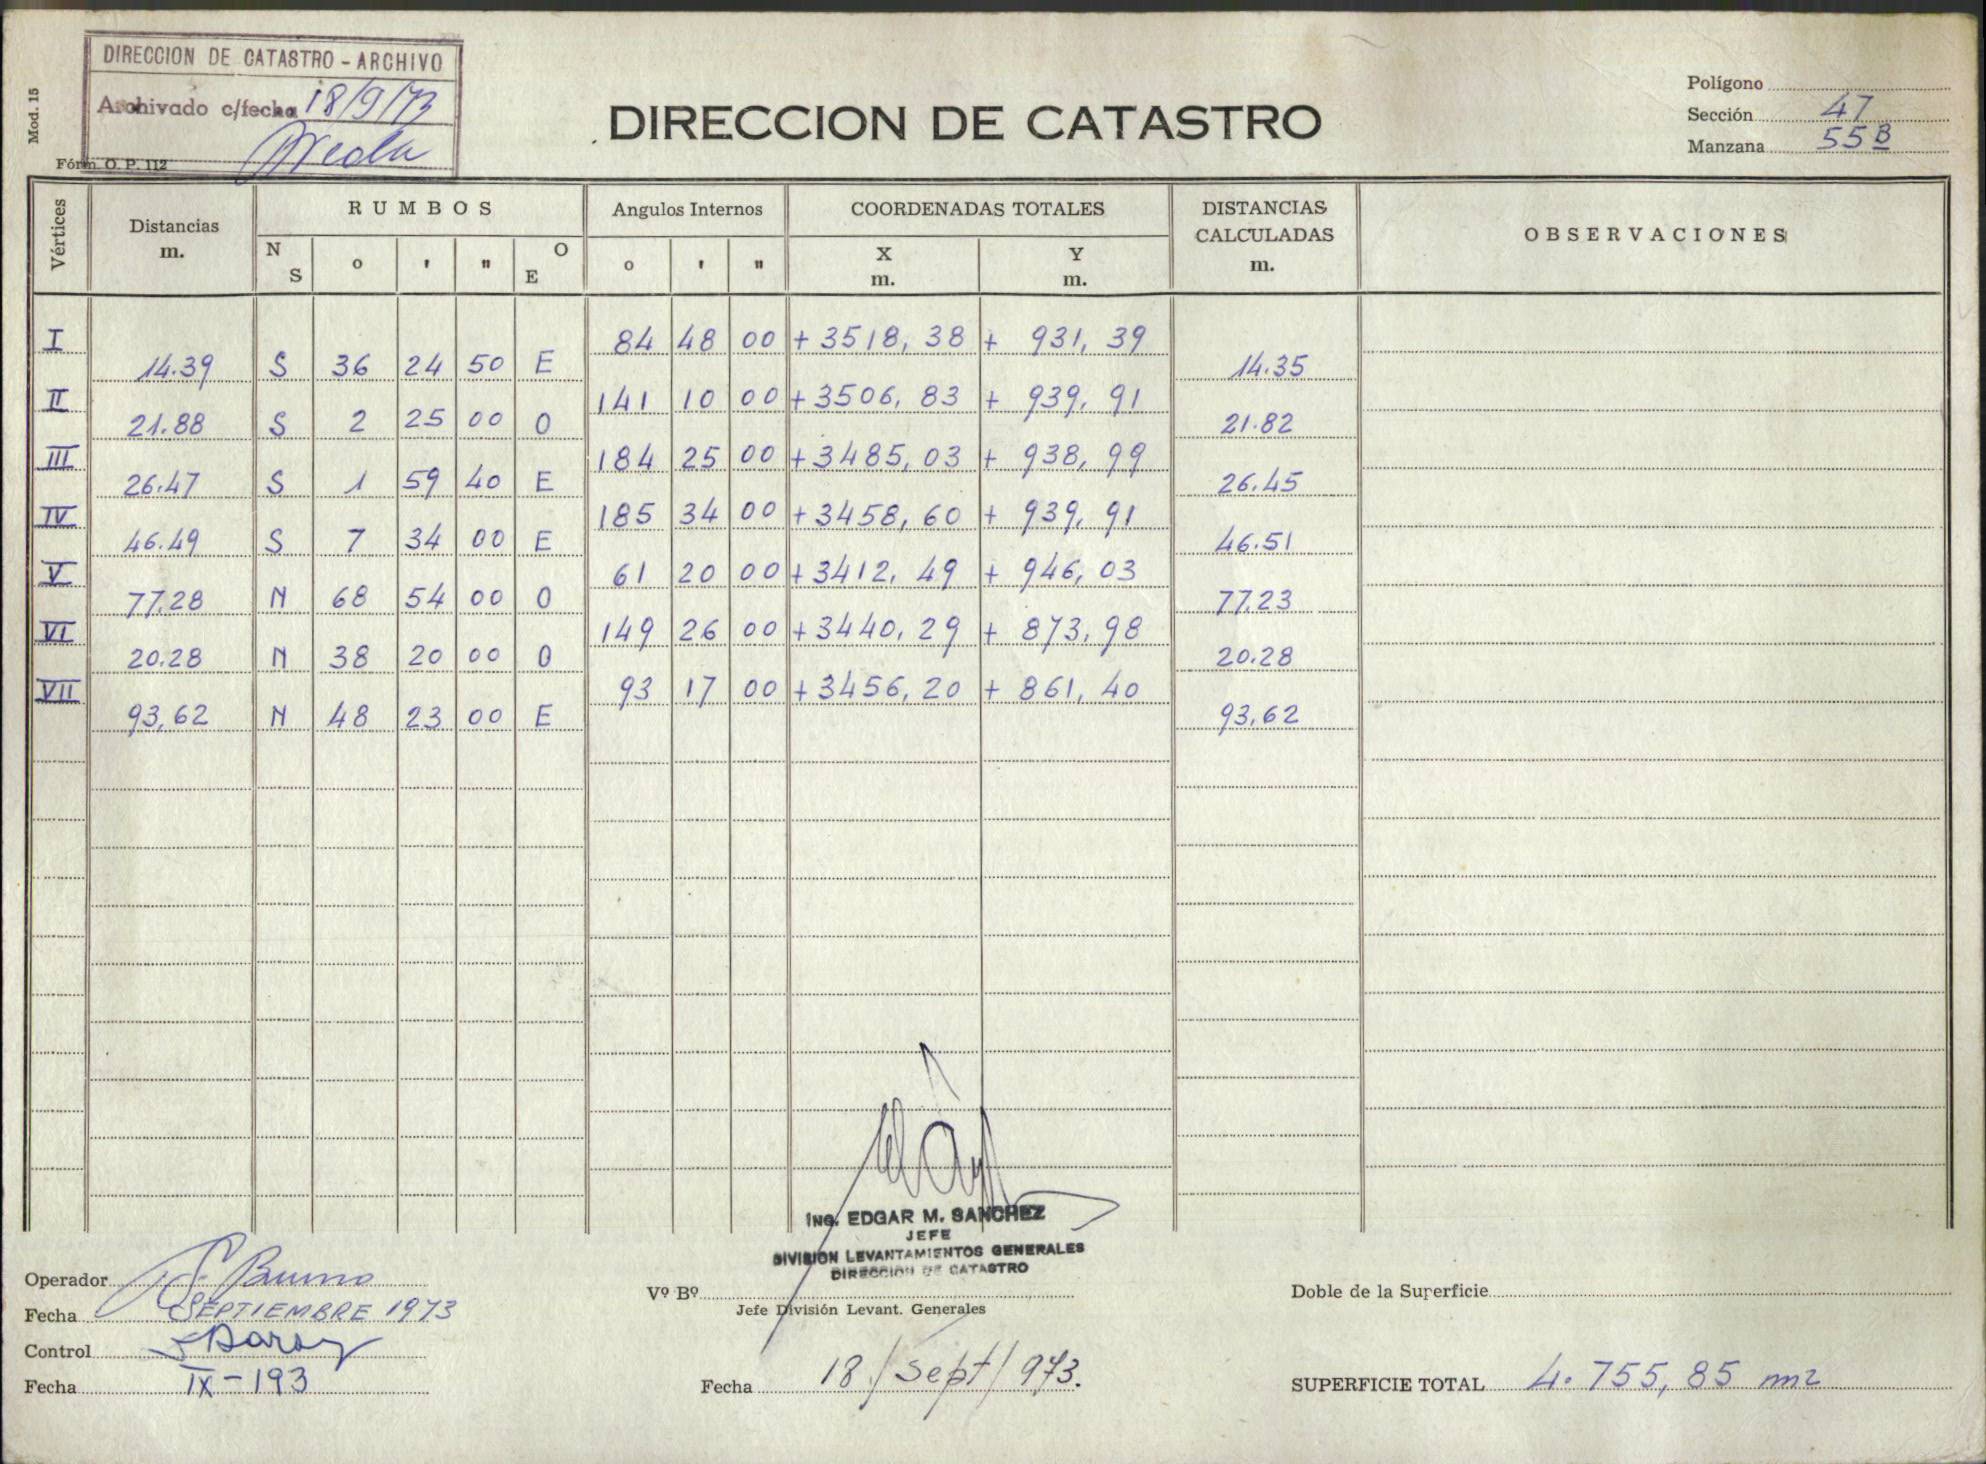 DIRECCION DE CATASTRO - ARCHIVO
Archivado c/fecha 18/9/73
Mod. 15
Fórm. O. P. 112
DIRECCION DE CATASTRO
Polígono
Sección 47
Manzana 55 B
Vértices
Distancias m.
RUMBOS
N S
o ' "
O E
Angulos Internos
o ' "
COORDENADAS TOTALES
X m.
Y m.
DISTANCIAS CALCULADAS m.
OBSERVACIONES
I 84 48 00 + 3518, 38 + 931, 39
14.39 S 36 24 50 E 14.35
II 141 10 00 + 3506, 83 + 939, 91
21.88 S 2 25 00 O 21.82
III 184 25 00 + 3485, 03 + 938, 99
26.47 S 1 59 40 E 26.45
IV 185 34 00 + 3458, 60 + 939, 91
46.49 S 7 34 00 E 46.51
V 61 20 00 + 3412, 49 + 946, 03
77.28 N 68 54 00 O 77.23
VI 149 26 00 + 3440, 29 + 873, 98
20.28 N 38 20 00 O 20.28
VII 93 17 00 + 3456, 20 + 861, 40
93,62 N 48 23 00 E 93,62
Ing. EDGAR M. SANCHEZ
JEFE
DIVISION LEVANTAMIENTOS GENERALES
DIRECCION DE CATASTRO
Operador S. Bruno
Fecha SEPTIEMBRE 1973
Control
Fecha IX-193
Vº Bº
Jefe División Levant. Generales
Fecha 18/Sept/973.
Doble de la Superficie
SUPERFICIE TOTAL 4.755,85 m2